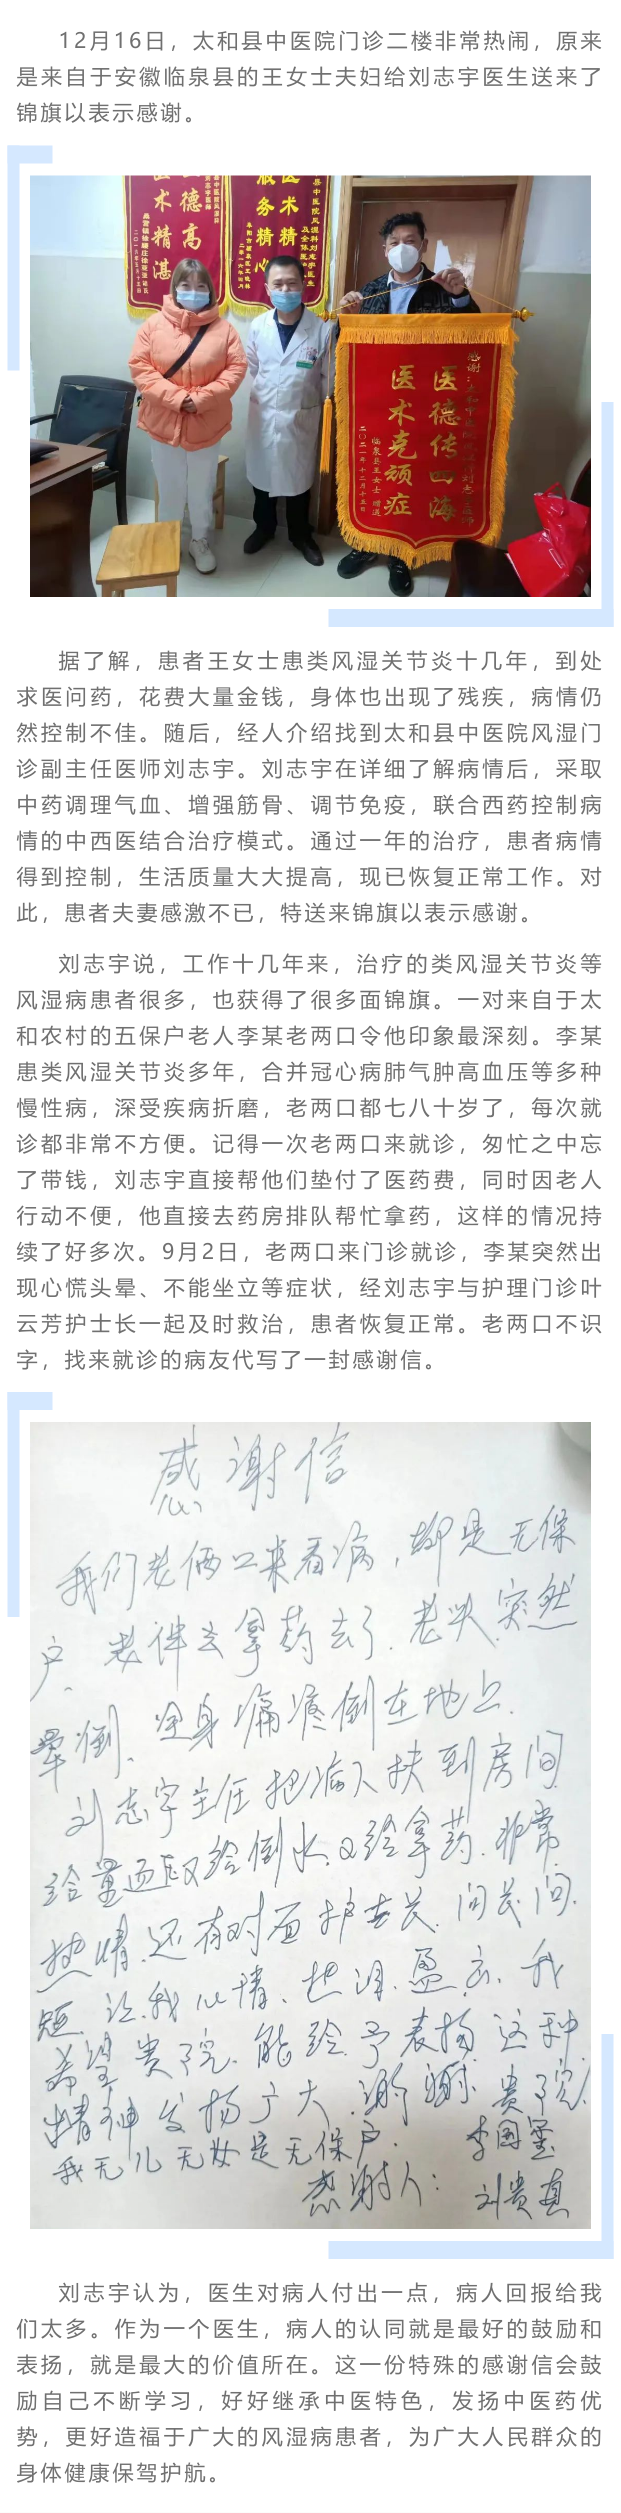 12月16日，太和县中医院门诊二楼非常热闹，原来
是来自于安徽临泉县的王女士夫妇给刘志宇医生送来了
锦旗以表示感谢。
医德高
医术精湛
医术精
服务精心
感谢：太和中医院
刘志宇医师
医德传四海
医术克顽症
临泉县王女士 赠送
二〇二一年十二月十五日
据了解，患者王女士患类风湿关节炎十几年，到处
求医问药，花费大量金钱，身体也出现了残疾，病情仍
然控制不佳。随后，经人介绍找到太和县中医院风湿门
诊副主任医师刘志宇。刘志宇在详细了解病情后，采取
中药调理气血、增强筋骨、调节免疫，联合西药控制病
情的中西医结合治疗模式。通过一年的治疗，患者病情
得到控制，生活质量大大提高，现已恢复正常工作。对
此，患者夫妻感激不已，特送来锦旗以表示感谢。
刘志宇说，工作十几年来，治疗的类风湿关节炎等
风湿病患者很多，也获得了很多面锦旗。一对来自于太
和农村的五保户老人李某老两口令他印象最深刻。李某
患类风湿关节炎多年，合并冠心病肺气肿高血压等多种
慢性病，深受疾病折磨，老两口都七八十岁了，每次就
诊都非常不方便。记得一次老两口来就诊，匆忙之中忘
了带钱，刘志宇直接帮他们垫付了医药费，同时因老人
行动不便，他直接去药房排队帮忙拿药，这样的情况持
续了好多次。9月2日，老两口来门诊就诊，李某突然出
现心慌头晕、不能坐立等症状，经刘志宇与护理门诊叶
云芳护士长一起及时救治，患者恢复正常。老两口不识
字，找来就诊的病友代写了一封感谢信。
感谢信
我们老俩口来看病，都是无保
户、老伴去拿药去了．老头．突然
晕倒．全身痛疼倒在地上．
刘志宇主任把病人扶到房间．
给量血压又给倒水．又给拿药．非常
热情．还有对面护士长．问长问．
短．让．我心情．热泪．盈．我
希望贵院．能给．予表扬这种
精神发扬广大．谢谢．贵院．
我无儿无女是无保户．
感谢人：
李国玺
刘贵真
刘志宇认为，医生对病人付出一点，病人回报给我
们太多。作为一个医生，病人的认同就是最好的鼓励和
表扬，就是最大的价值所在。这一份特殊的感谢信会鼓
励自己不断学习，好好继承中医特色，发扬中医药优
势，更好造福于广大的风湿病患者，为广大人民群众的
身体健康保驾护航。